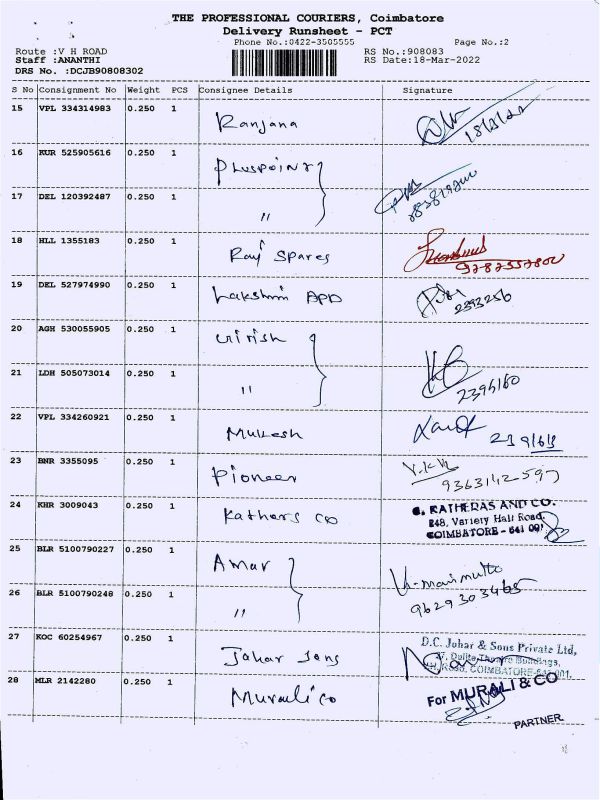 THE PROFESSIONAL COURIERS, Coimbatore
Delivery Runsheet - PCT
Phone No.:0422-3505555 Page No.:2
Route :V H ROAD RS No.:908083
Staff :ANANTHI RS Date:18-Mar-2022
DRS No. :DCJB90808302
S No Consignment No Weight PCS Consignee Details Signature
15 VPL 334314983 0.250 1 Ranjana
16 KUR 525905616 0.250 1 Pluspoint
17 DEL 120392487 0.250 1 "
18 HLL 1355183 0.250 1 Raj Spares
19 DEL 527974990 0.250 1 Lakshmi APD 2393256
20 AGH 530055905 0.250 1 Girish
21 LDH 505073014 0.250 1 " 2395160
22 VPL 334260921 0.250 1 Mukesh
23 BNR 3355095 0.250 1 Pioneer 9363142597
24 KHR 3009043 0.250 1 Kathers co
KATHERAS AND CO.
248, Variety Hall Road,
COIMBATORE - 641 001
25 BLR 5100790227 0.250 1 Amar
26 BLR 5100790248 0.250 1 " 9629303465
27 KOC 60254967 0.250 1 Johar Sons
D.C. Johar & Sons Private Ltd,
COIMBATORE-641 001.
28 MLR 2142280 0.250 1 Murali co
For MURALI & CO
PARTNER